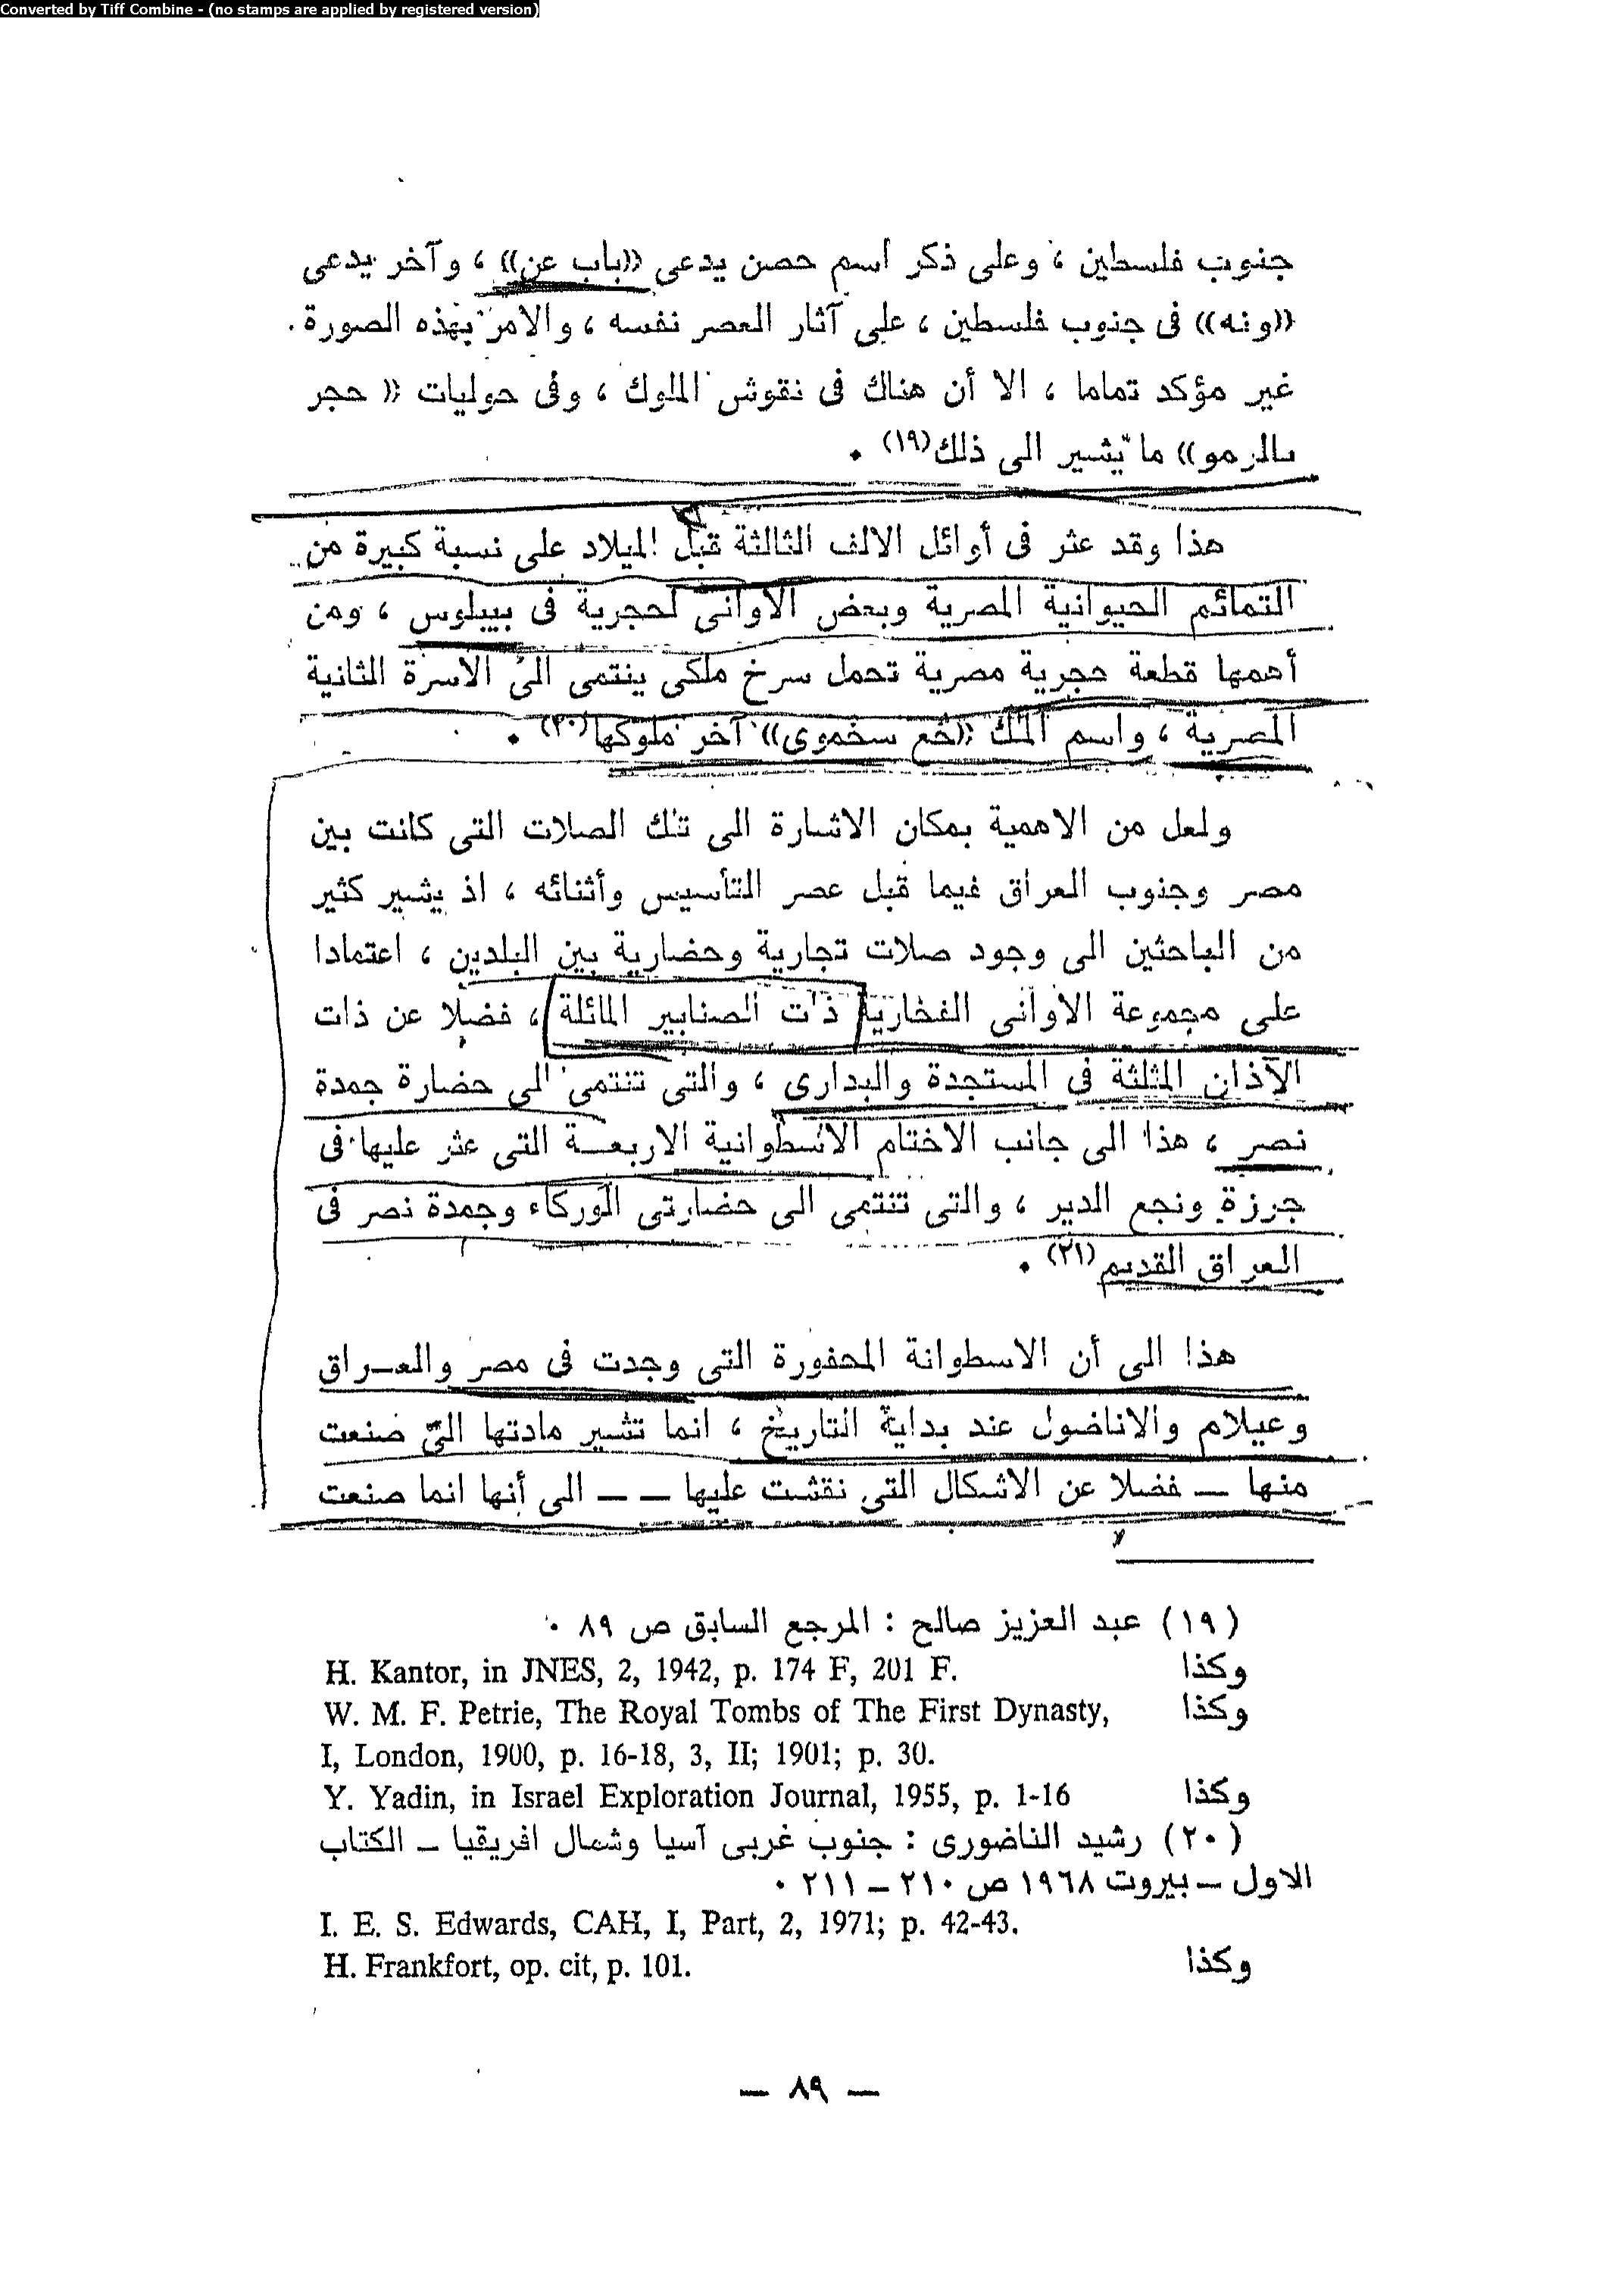 Converted by Tiff Combine - (no stamps are applied by registered version)
جنوب فلسطين ، وعلى ذكر اسم حصن يدعى «باب عن» ، وآخر يدعى
«ونه» فى جنوب فلسطين ، على آثار العصر نفسه ، والامر بهذه الصورة
غير مؤكد تماما ، الا أن هناك فى نقوش الملوك ، وفى حوليات « حجر
بالرمو» ما يشير الى ذلك(١٩) ٠
هذا وقد عثر فى أوائل الالف الثالثة قبل الميلاد على نسبة كبيرة من
التمائم الحيوانية المصرية وبعض الاوانى الحجرية فى بيبلوس ، ومن
أهمها قطعة حجرية مصرية تحمل سرخ ملكى ينتمى الى الاسرة الثانية
المصرية ، واسم الملك «خع سخموى» آخر ملوكها(٢٠) ٠
ولعل من الاهمية بمكان الاشارة الى تلك الصلات التى كانت بين
مصر وجنوب العراق فيما قبل عصر التأسيس وأثنائه ، اذ يشير كثير
من الباحثين الى وجود صلات تجارية وحضارية بين البلدين ، اعتمادا
على مجموعة الاوانى الفخارية ذات الصنابير المائلة ، فضلا عن ذات
الآذان المثلثة فى المستجدة والبدارى ، والتى تنتمى الى حضارة جمدة
نصر ، هذا الى جانب الاختام الاسطوانية الاربعة التى عثر عليها فى
جرزة ونجع الدير ، والتى تنتمى الى حضارتى الوركاء وجمدة نصر فى
العراق القديم(٢١) ٠
هذا الى أن الاسطوانة المحفورة التى وجدت فى مصر والعراق
وعيلام والاناضول عند بداية التاريخ ، انما تشير مادتها التى صنعت
منها — فضلا عن الاشكال التى نقشت عليها — — الى أنها انما صنعت
(١٩) عبد العزيز صالح : المرجع السابق ص ٨٩ ٠
وكذا H. Kantor, in JNES, 2, 1942, p. 174 F, 201 F.
وكذا W. M. F. Petrie, The Royal Tombs of The First Dynasty,
I, London, 1900, p. 16-18, 3, II; 1901; p. 30.
وكذا Y. Yadin, in Israel Exploration Journal, 1955, p. 1-16
(٢٠) رشيد الناضورى : جنوب غربى آسيا وشمال افريقيا — الكتاب
الاول — بيروت ١٩٦٨ ص ٢١٠ — ٢١١ ٠
I. E. S. Edwards, CAH, I, Part, 2, 1971; p. 42-43.
وكذا H. Frankfort, op. cit, p. 101.
— ٨٩ —